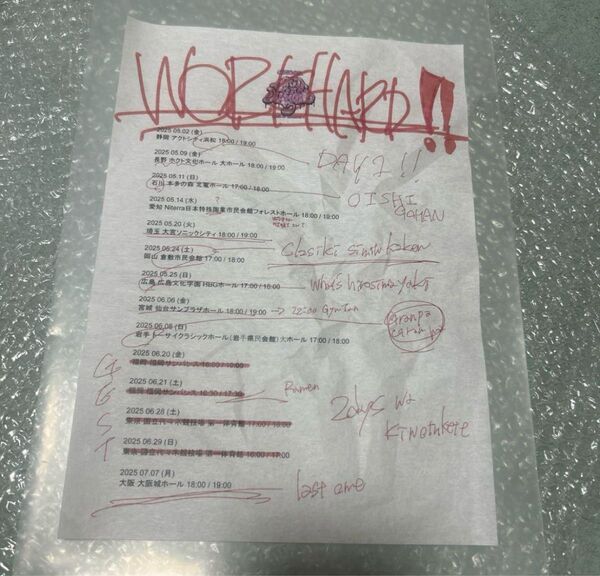 WORK HARD!!
2025 05.02 (金)
静岡 アクトシティ浜松 18:00 / 19:00
2025 05.09 (金)
長野 ホクト文化ホール 大ホール 18:00 / 19:00
DAY 2!!
2025 05.11 (日)
石川 本多の森 北電ホール 17:00 / 18:00
OISHI
GOHAN
2025 05.14 (水) ?
愛知 Niterra日本特殊陶業市民会館フォレストホール 18:00 / 19:00
2025 05.20 (火)
埼玉 大宮ソニックシティ 18:00 / 19:00
2025 05.24 (土)
岡山 倉敷市民会館 17:00 / 18:00
2025 05.25 (日)
広島 広島文化学園HBGホール 17:00 / 18:00
What's hirosimayaki
2025 06.06 (金)
宮城 仙台サンプラザホール 18:00 / 19:00 → 22:00 GyuTan
2025 06.08 (日)
岩手 トーサイクラシックホール(岩手県民会館) 大ホール 17:00 / 18:00
G 2025 06.20 (金)
福岡 福岡サンパレス 18:00 / 19:00
G 2025 06.21 (土)
福岡 福岡サンパレス 16:30 / 17:30
Ramen
S 2025 06.28 (土)
東京 国立代々木競技場 第一体育館 17:00 / 18:00
2days wa
kiwotukete
T 2025 06.29 (日)
東京 国立代々木競技場 第一体育館 16:00 / 17:00
2025 07.07 (月)
大阪 大阪城ホール 18:00 / 19:00
last one